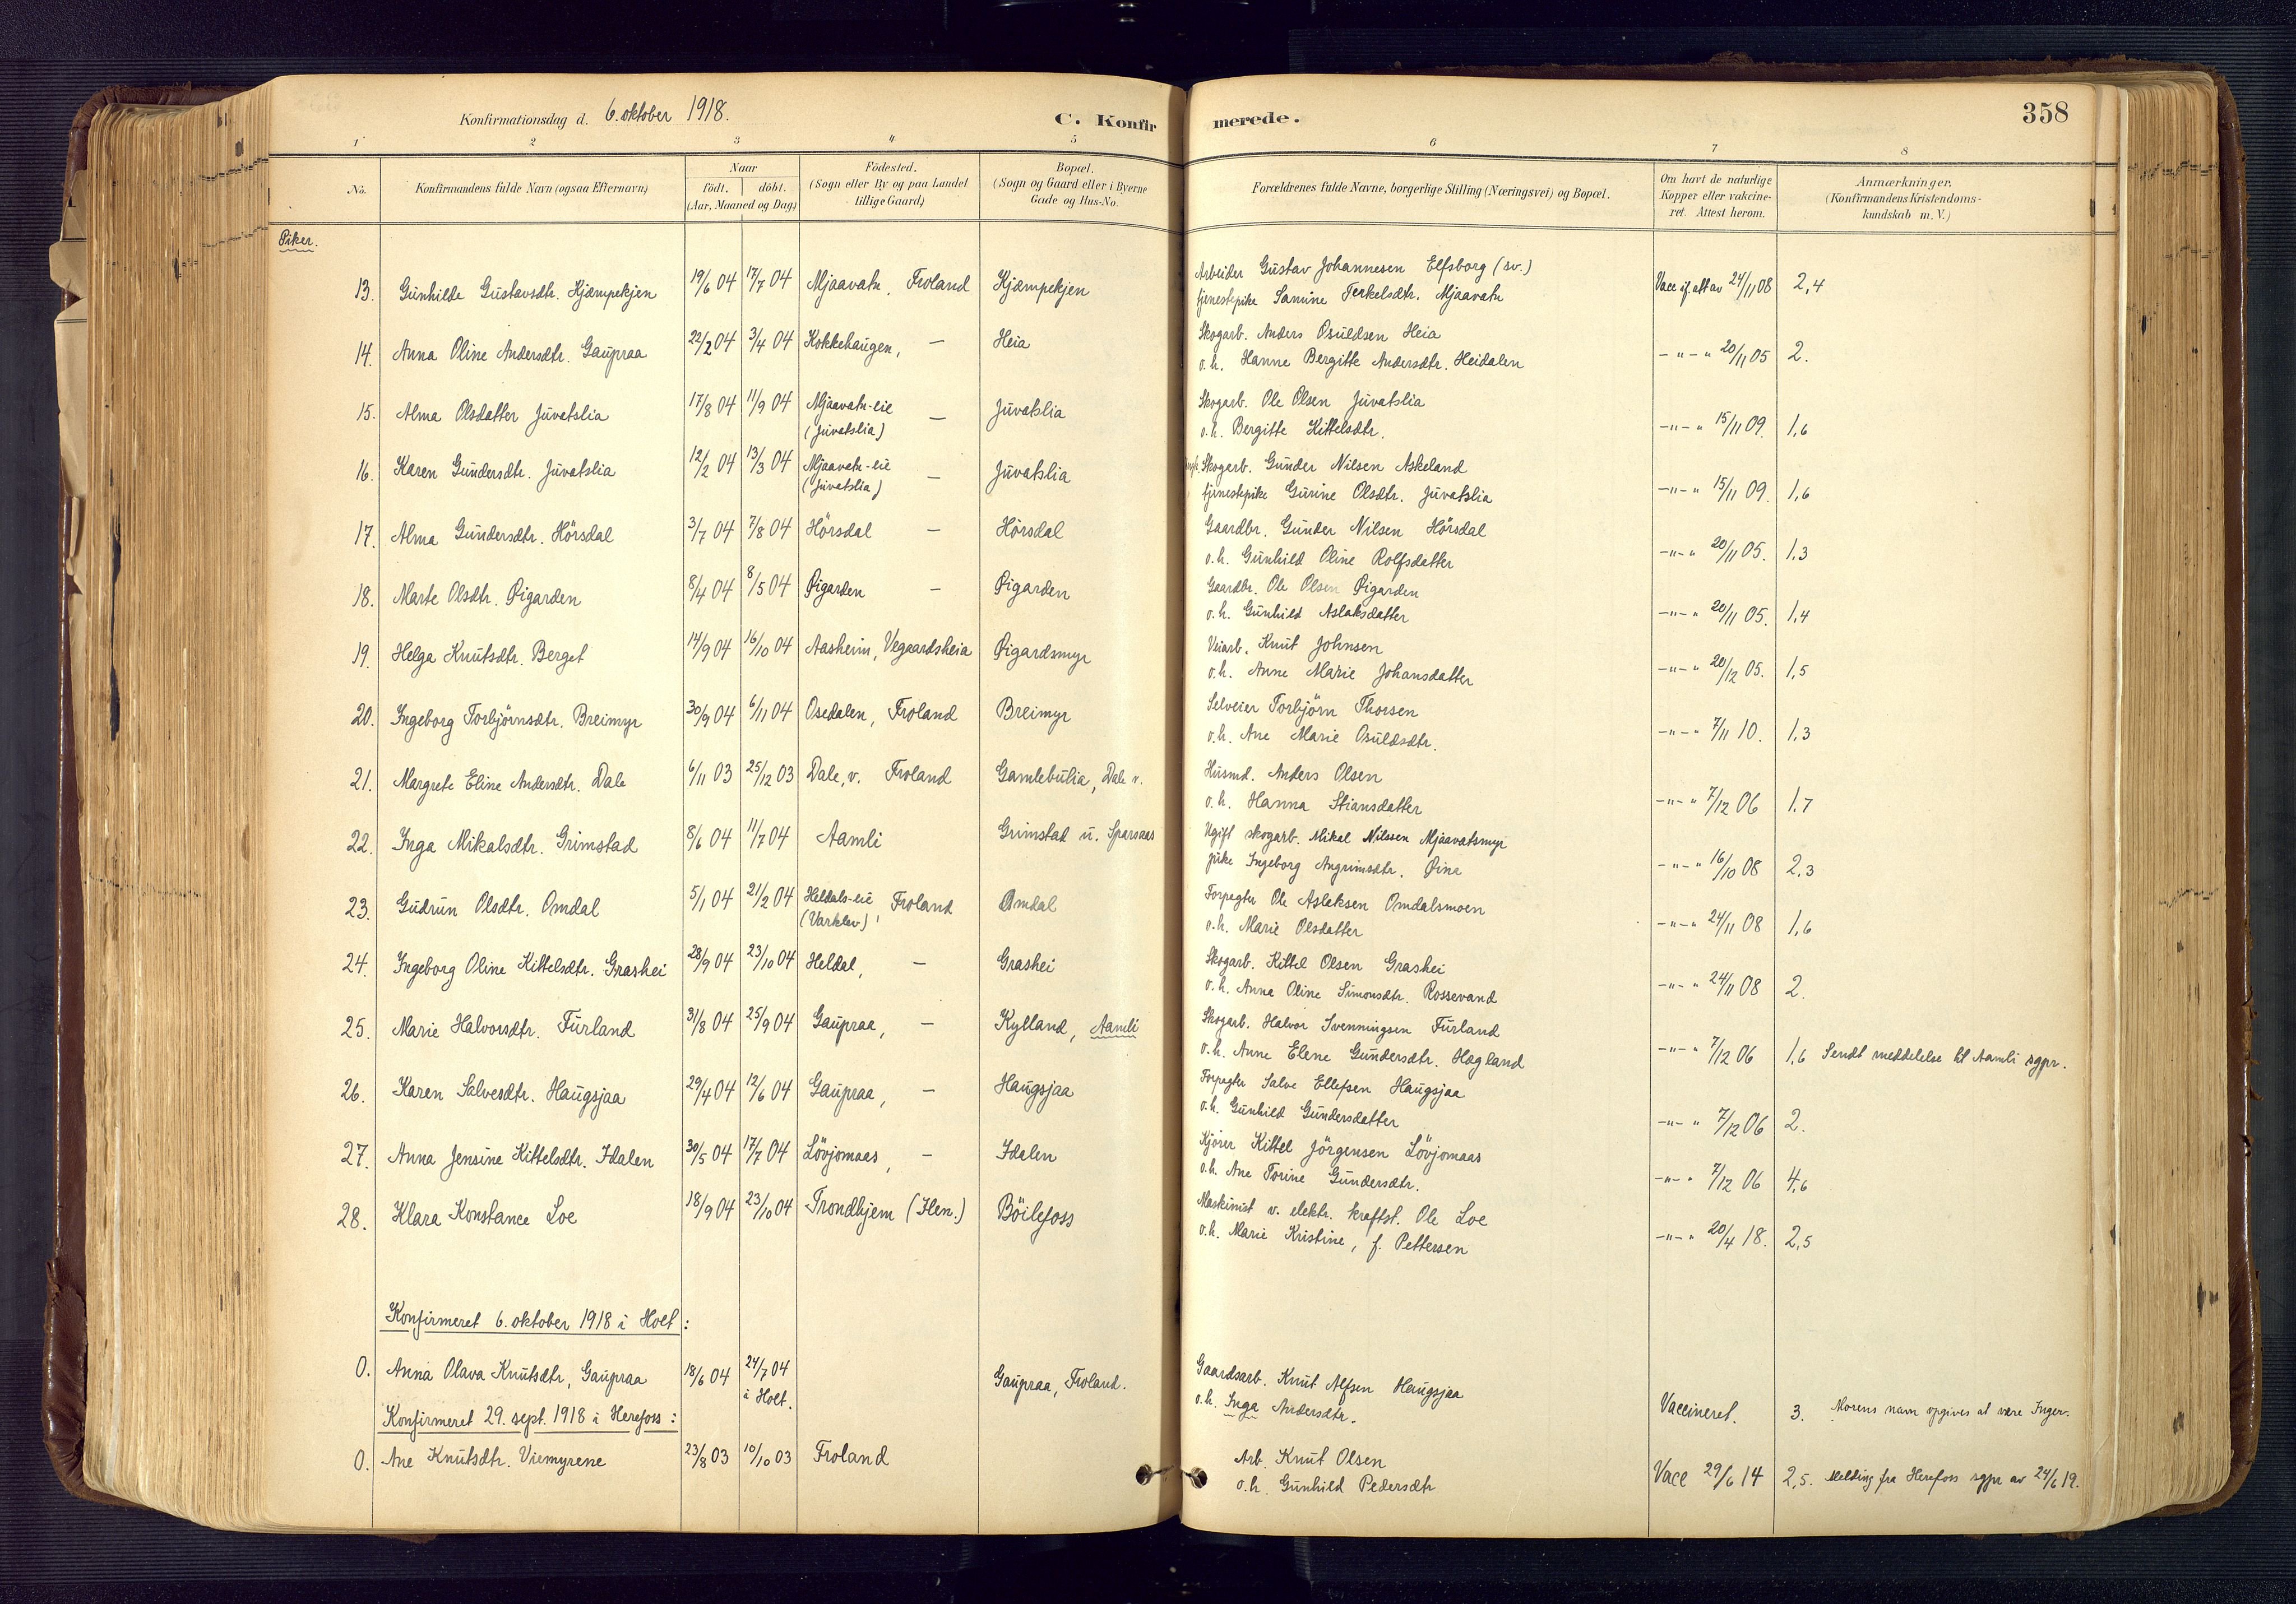 Konfirmationsdag d. 6. oktober 1918.
C. Konfirmerede.
358
1 2 3 4 5 6 7 8
No.
Konfirmandens fulde Navn (ogsaa Efternavn)
Naar
födt. döbt.
(Aar, Maaned og Dag)
Födested.
(Sogn eller By og paa Landet
tillige Gaard)
Bopæl.
(Sogn og Gaard eller i Byerne
Gade og Hus-No.
Forældrenes fulde Navne, borgerlige Stilling (Næringsvei) og Bopæl.
Om havt de naturlige
Kopper eller vakcine-
ret. Attest herom.
Anmærkninger.
(Konfirmandens Kristendoms-
kundskab m. V.)
Piker.
13. Gunhilde Gustavsdtr. Kjæmpekjen 19/6 04 17/7 04 Mjaavatn, Froland Kjæmpekjen Arbeider Gustav Johannesen Elfsborg (sv.) Vacc if. att av 24/11 08 2,4
tjenestepike Samine Terkelsdtr. Mjaavatn
14. Anna Oline Andersdtr. Gaupraa 22/2 04 3/4 04 Kokkehaugen, — Heia Skogarb. Anders Osuldsen Heia
o.h. Hanne Bergitte Andersdtr. Heidalen -"-" 20/11 05 2.
15. Alma Olsdatter Juvatslia 17/8 04 11/9 04 Mjaavatn-eie — Juvatslia Skogarb. Ole Olsen Juvatslia
(Juvatslia) o.h. Bergitte Kittelsdtr. -"-" 15/11 09. 1,6
16. Karen Gundersdtr. Juvatslia 12/2 04 13/3 04 Mjaavatn-eie — Juvatslia Skogarb. Gunder Nilsen Askeland
(Juvatslia) tjenestepike Gurine Olsdtr. Juvatslia -"-" 15/11 09. 1,6
17. Alma Gundersdtr. Hörsdal 3/7 04 7/8 04 Hörsdal — Hörsdal Gaardbr. Gunder Nilsen Hörsdal
o.h. Gunhild Oline Rolfsdatter -"-" 20/11 05. 1,3
18. Marte Olsdtr. Øigarden 8/4 04 8/5 04 Øigarden — Øigarden Gaardbr. Ole Olsen Øigarden
o.h. Gunhild Aslaksdatter -"-" 20/11 05. 1,4
19. Helga Knutsdtr. Berget 14/9 04 16/10 04 Aasheim, Vegaardsheia Øigardsmyr Veiarb. Knut Johnsen
o.h. Anne Marie Johansdatter -"-" 20/12 05. 1,5
20. Ingeborg Torbjörnsdtr. Breimyr 30/9 04 6/11 04 Osedalen, Froland Breimyr Selveier Torbjörn Thorsen
o.h. Ane Marie Osuldsdtr. -"-" 7/11 10. 1,3
21. Margrete Eline Andersdtr. Dale 6/11 03 25/12 03 Dale, v. Froland Gamlebulia, Dale v. Husmd. Anders Olsen
o.h. Hanna Stiansdatter -"-" 7/12 06 1,7
22. Inga Mikalsdtr. Grimstad 8/6 04 11/7 04 Aamli Grimstad u. Sparsaas Ugift skogarb. Mikal Nilssen Mjaavatsmyr
pike Ingeborg Angrimsdtr. Øina -"-" 16/10 08 2,3
23. Gudrun Olsdtr. Omdal 5/1 04 21/2 04 Heldals-eie Froland Omdal Forpagter Ole Asleksen Omdalsmoen
(Varklev) o.h. Marie Olsdatter -"-" 24/11 08 1,6
24. Ingeborg Oline Kittelsdtr. Grashei 28/9 04 23/10 04 Heldal, — Grashei Skogarb. Kittel Olsen Grashei
o.h. Anna Oline Simonsdtr. Rossevand -"-" 24/11 08 2.
25. Marie Halvorsdtr. Furland 31/8 04 25/9 04 Gaupraa, — Kylland, Aamli Skogarb. Halvor Svenningsen Furland
o.h. Anne Elene Gundersdtr. Hagland -"-" 7/12 06 1,6 Sendt meddelelse til Aamli sgpr.
26. Karen Salvesdtr. Haugsjaa 29/4 04 12/6 04 Gaupraa, — Haugsjaa Forpagter Salve Ellefsen Haugsjaa
o.h. Gunhild Gundersdatter -"-" 7/12 06 2.
27. Anna Jensine Kittelsdtr. Idalen 30/5 04 17/7 04 Lövjomaas, — Idalen Kjörer Kittel Jörgensen Lövjomaas
o.h. Ane Torine Gundersdtr. -"-" 7/12 06 4,6
28. Klara Konstance Loe 18/9 04 23/10 04 Trondhjem (Ilen.) Böilefoss Maskinist v. elektr. kraftst. Ole Loe
o.h. Marie Kristine, f. Pettersen -"-" 20/4 18. 2,5
Konfirmeret 6. oktober 1918 i Holt:
0. Anna Olava Knutsdtr, Gaupraa 18/6 04 24/7 04 i Holt. Gaupraa, Froland. Gaardsarb. Knut Alfsen Haugsjaa
o.h. Inga Andersdtr. Vaccineret. 3. Morens navn opgives at være Inger.
Konfirmeret 29. sept. 1918 i Herefoss:
0. Ane Knutsdtr. Viemyrene 23/8 03 10/10 03 Froland Arb. Knut Olsen
o.h. Gunhild Pedersdtr Vacc 29/6 14 2,5. Melding fra Herefoss sgpr av 24/6 19.